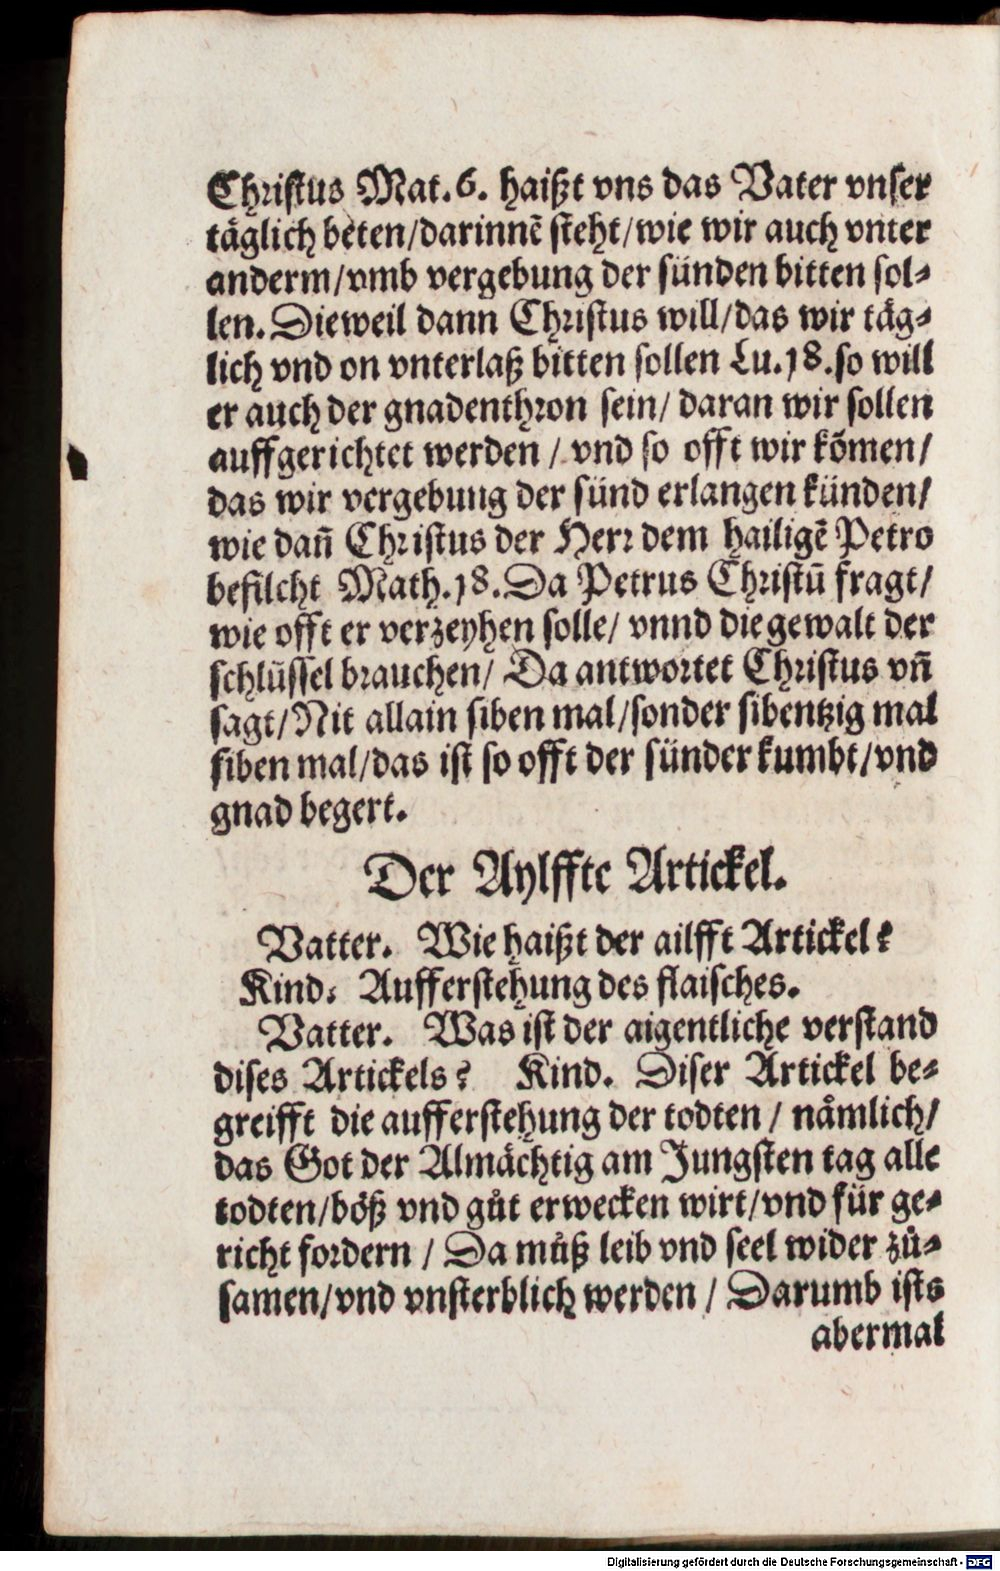 Christus Mat.6. haißt vns das Vater vnser
täglich beten/darinnẽ steht/wie wir auch vnter
anderm/vmb vergebung der sünden bitten sol-
len. Dieweil dann Christus will/das wir täg-
lich vnd on vnterlaß bitten sollen Lu.18.so will
er auch der gnadenthron sein/ daran wir sollen
auffgerichtet werden / vnd so offt wir kõmen/
das wir vergebung der sünd erlangen künden/
wie dañ Christus der Herr dem hailigẽ Petro
befilcht Math.18. Da Petrus Christũ fragt/
wie offt er verzeyhen solle/ vnnd die gewalt der
schlüssel brauchen/ Da antwortet Christus vñ
sagt/Nit allain siben mal/sonder sibentzig mal
siben mal/das ist so offt der sünder kumbt/vnd
gnad begert.
Der Aylffte Artickel.
Vatter. Wie haißt der ailfft Artickel?
Kind. Aufferstehung des flaisches.
Vatter. Was ist der aigentliche verstand
dises Artickels? Kind. Diser Artickel be-
greifft die aufferstehung der todten / nämlich/
das Got der Almächtig am Jungsten tag alle
todten/böß vnd gůt erwecken wirt/vnd für ge-
richt fordern / Da můß leib vnd seel wider zů-
samen/vnd vnsterblich werden / Darumb ists
abermal
Digitalisierung gefördert durch die Deutsche Forschungsgemeinschaft - DFG